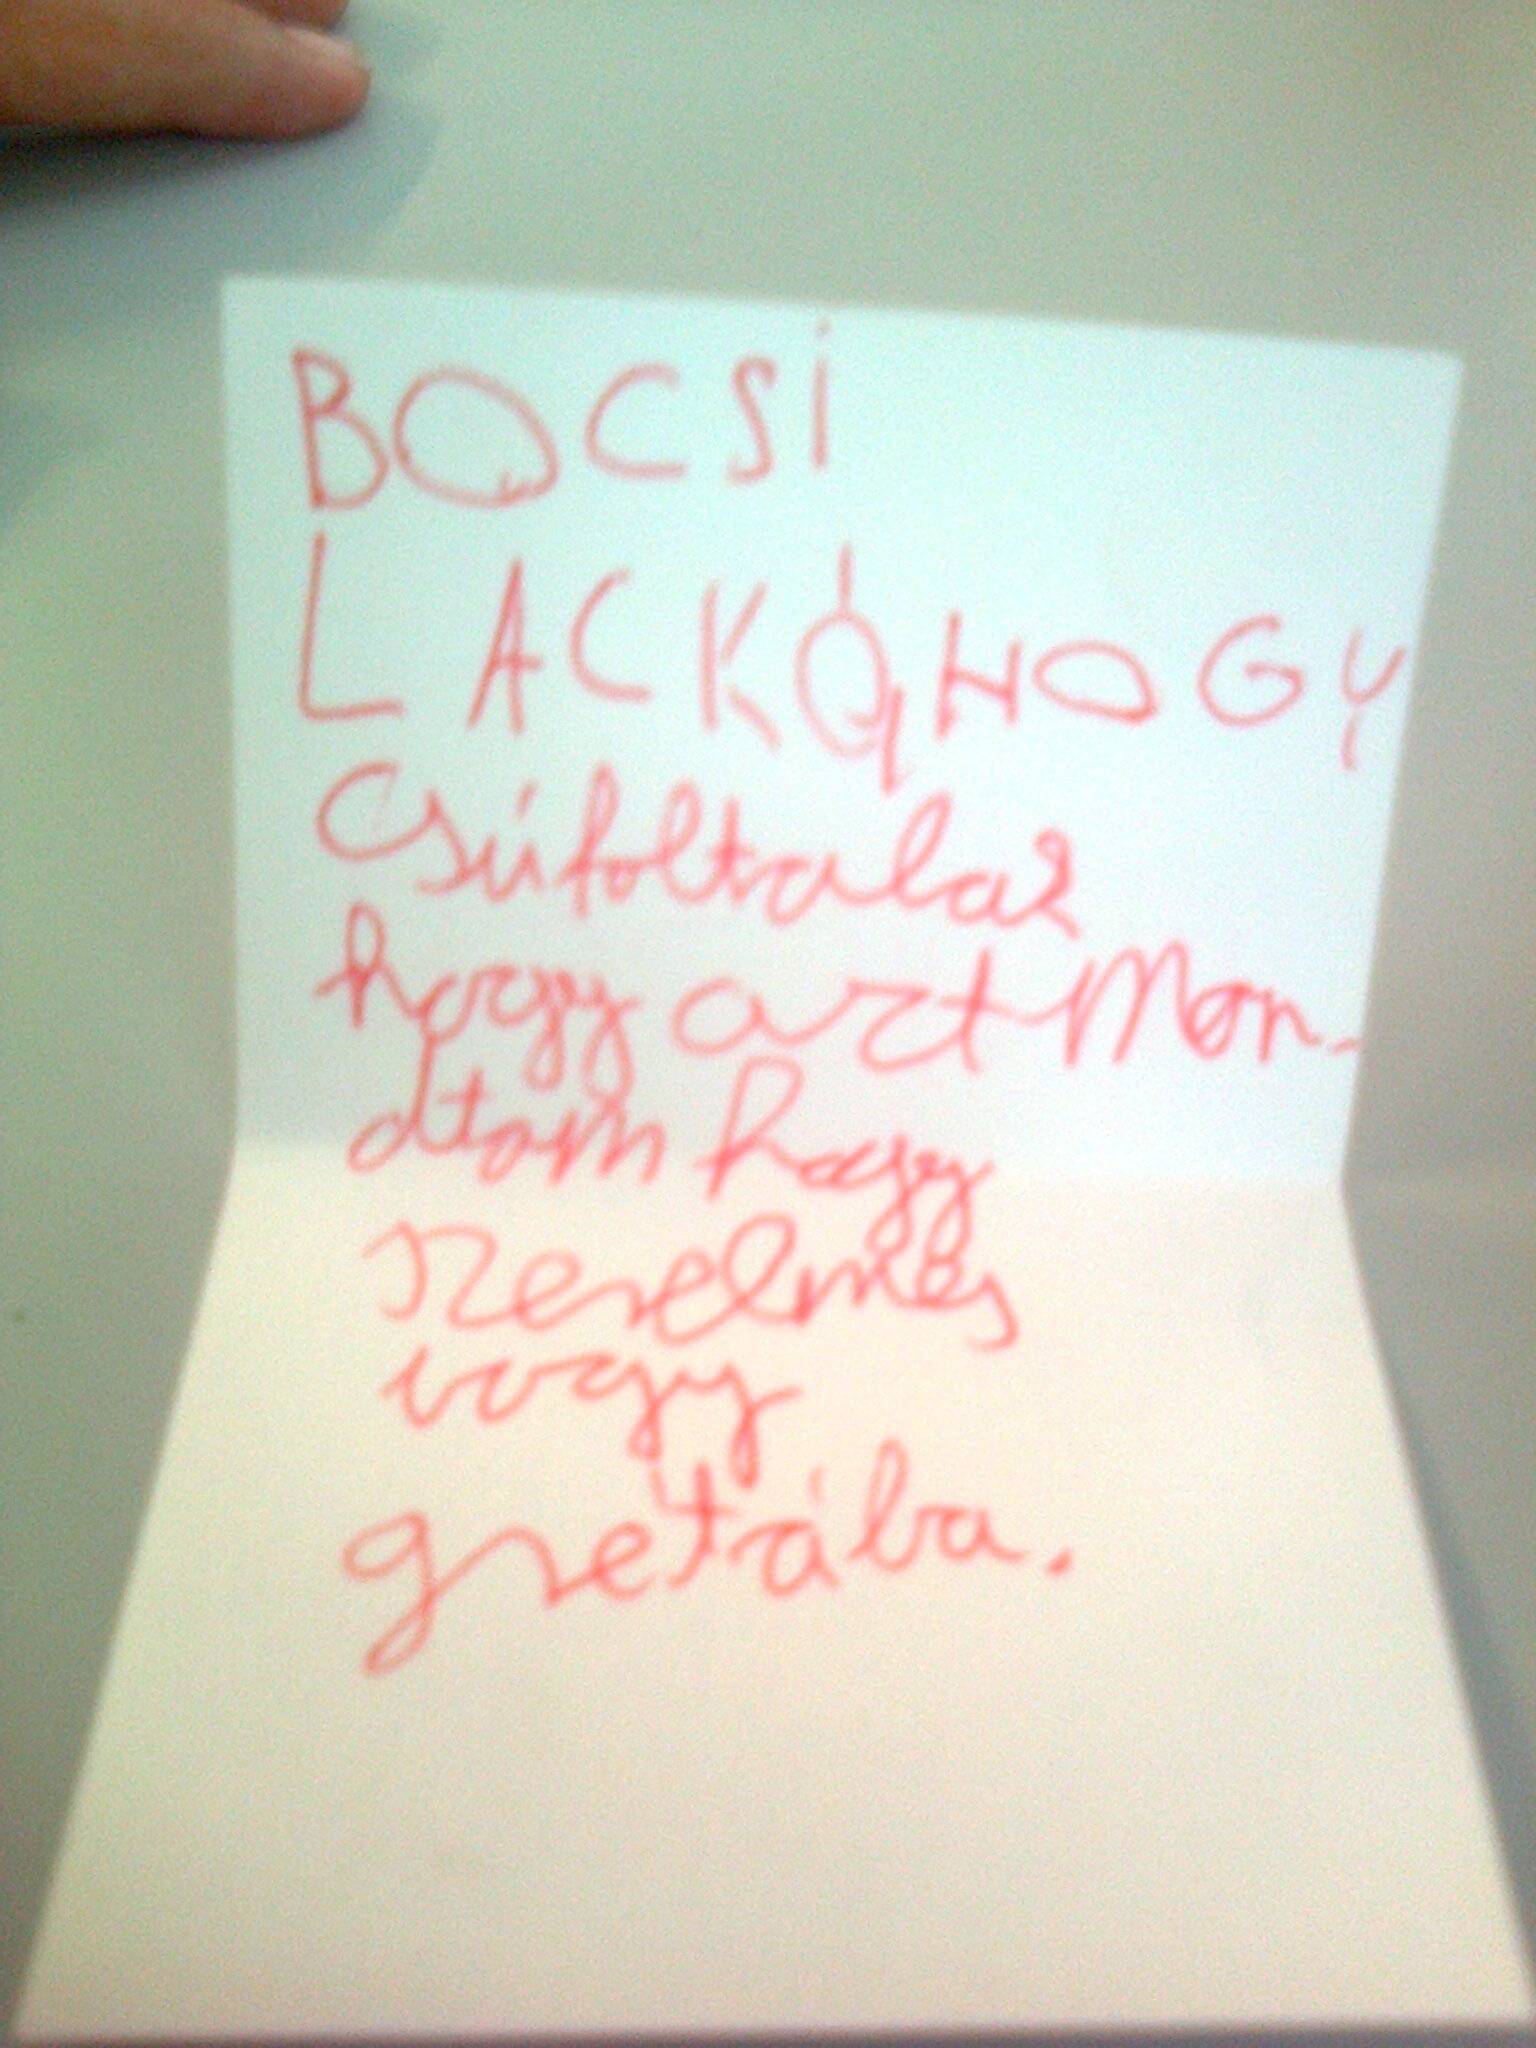 BOCSI
LACKÓ, HOGY
Csúfoltalak
hogy azt Mon-
dtam hogy
szerelmes
vagy
gretába.